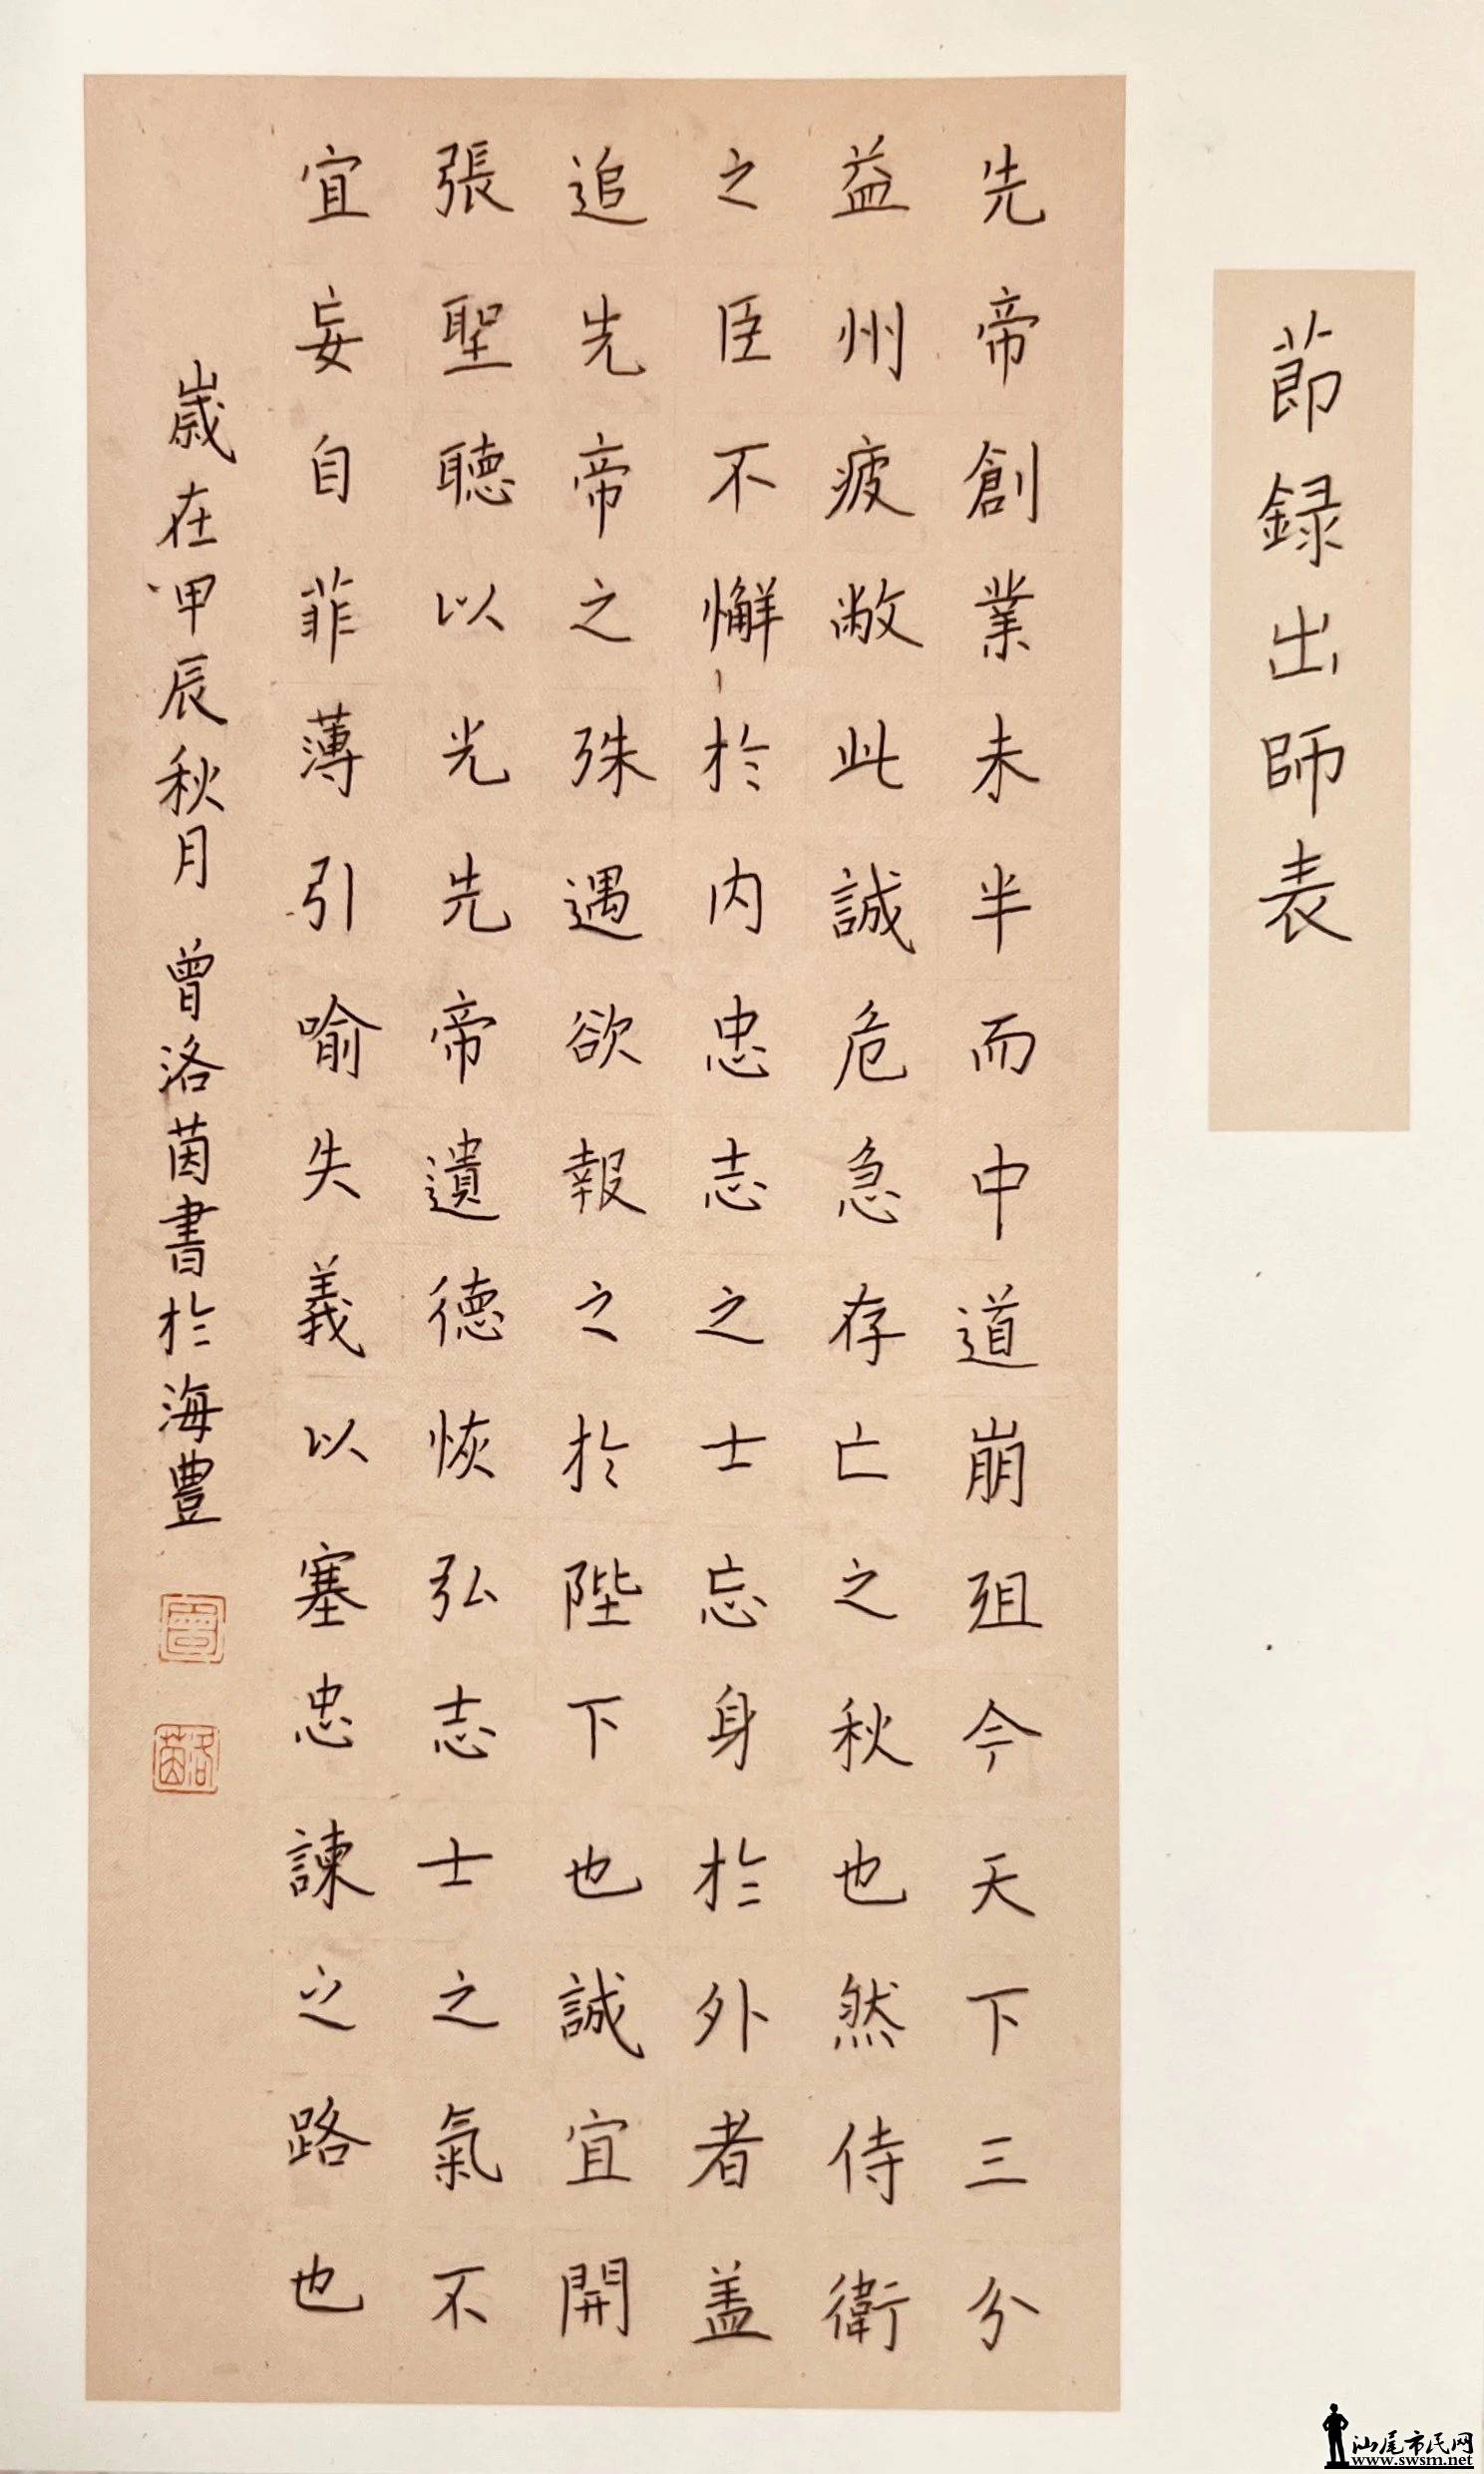 節録出師表
先帝創業未半而中道崩殂今天下三分
益州疲敝此誠危急存亡之秋也然侍衛
之臣不懈於内忠志之士忘身於外者盖
追先帝之殊遇欲報之於陛下也誠宜開
張聖聽以光先帝遺德恢弘志士之氣不
宜妄自菲薄引喻失義以塞忠諫之路也
歲在甲辰秋月 曾洛茵書於海豊
曾
洛茵
汕尾市民网
www.swsm.net